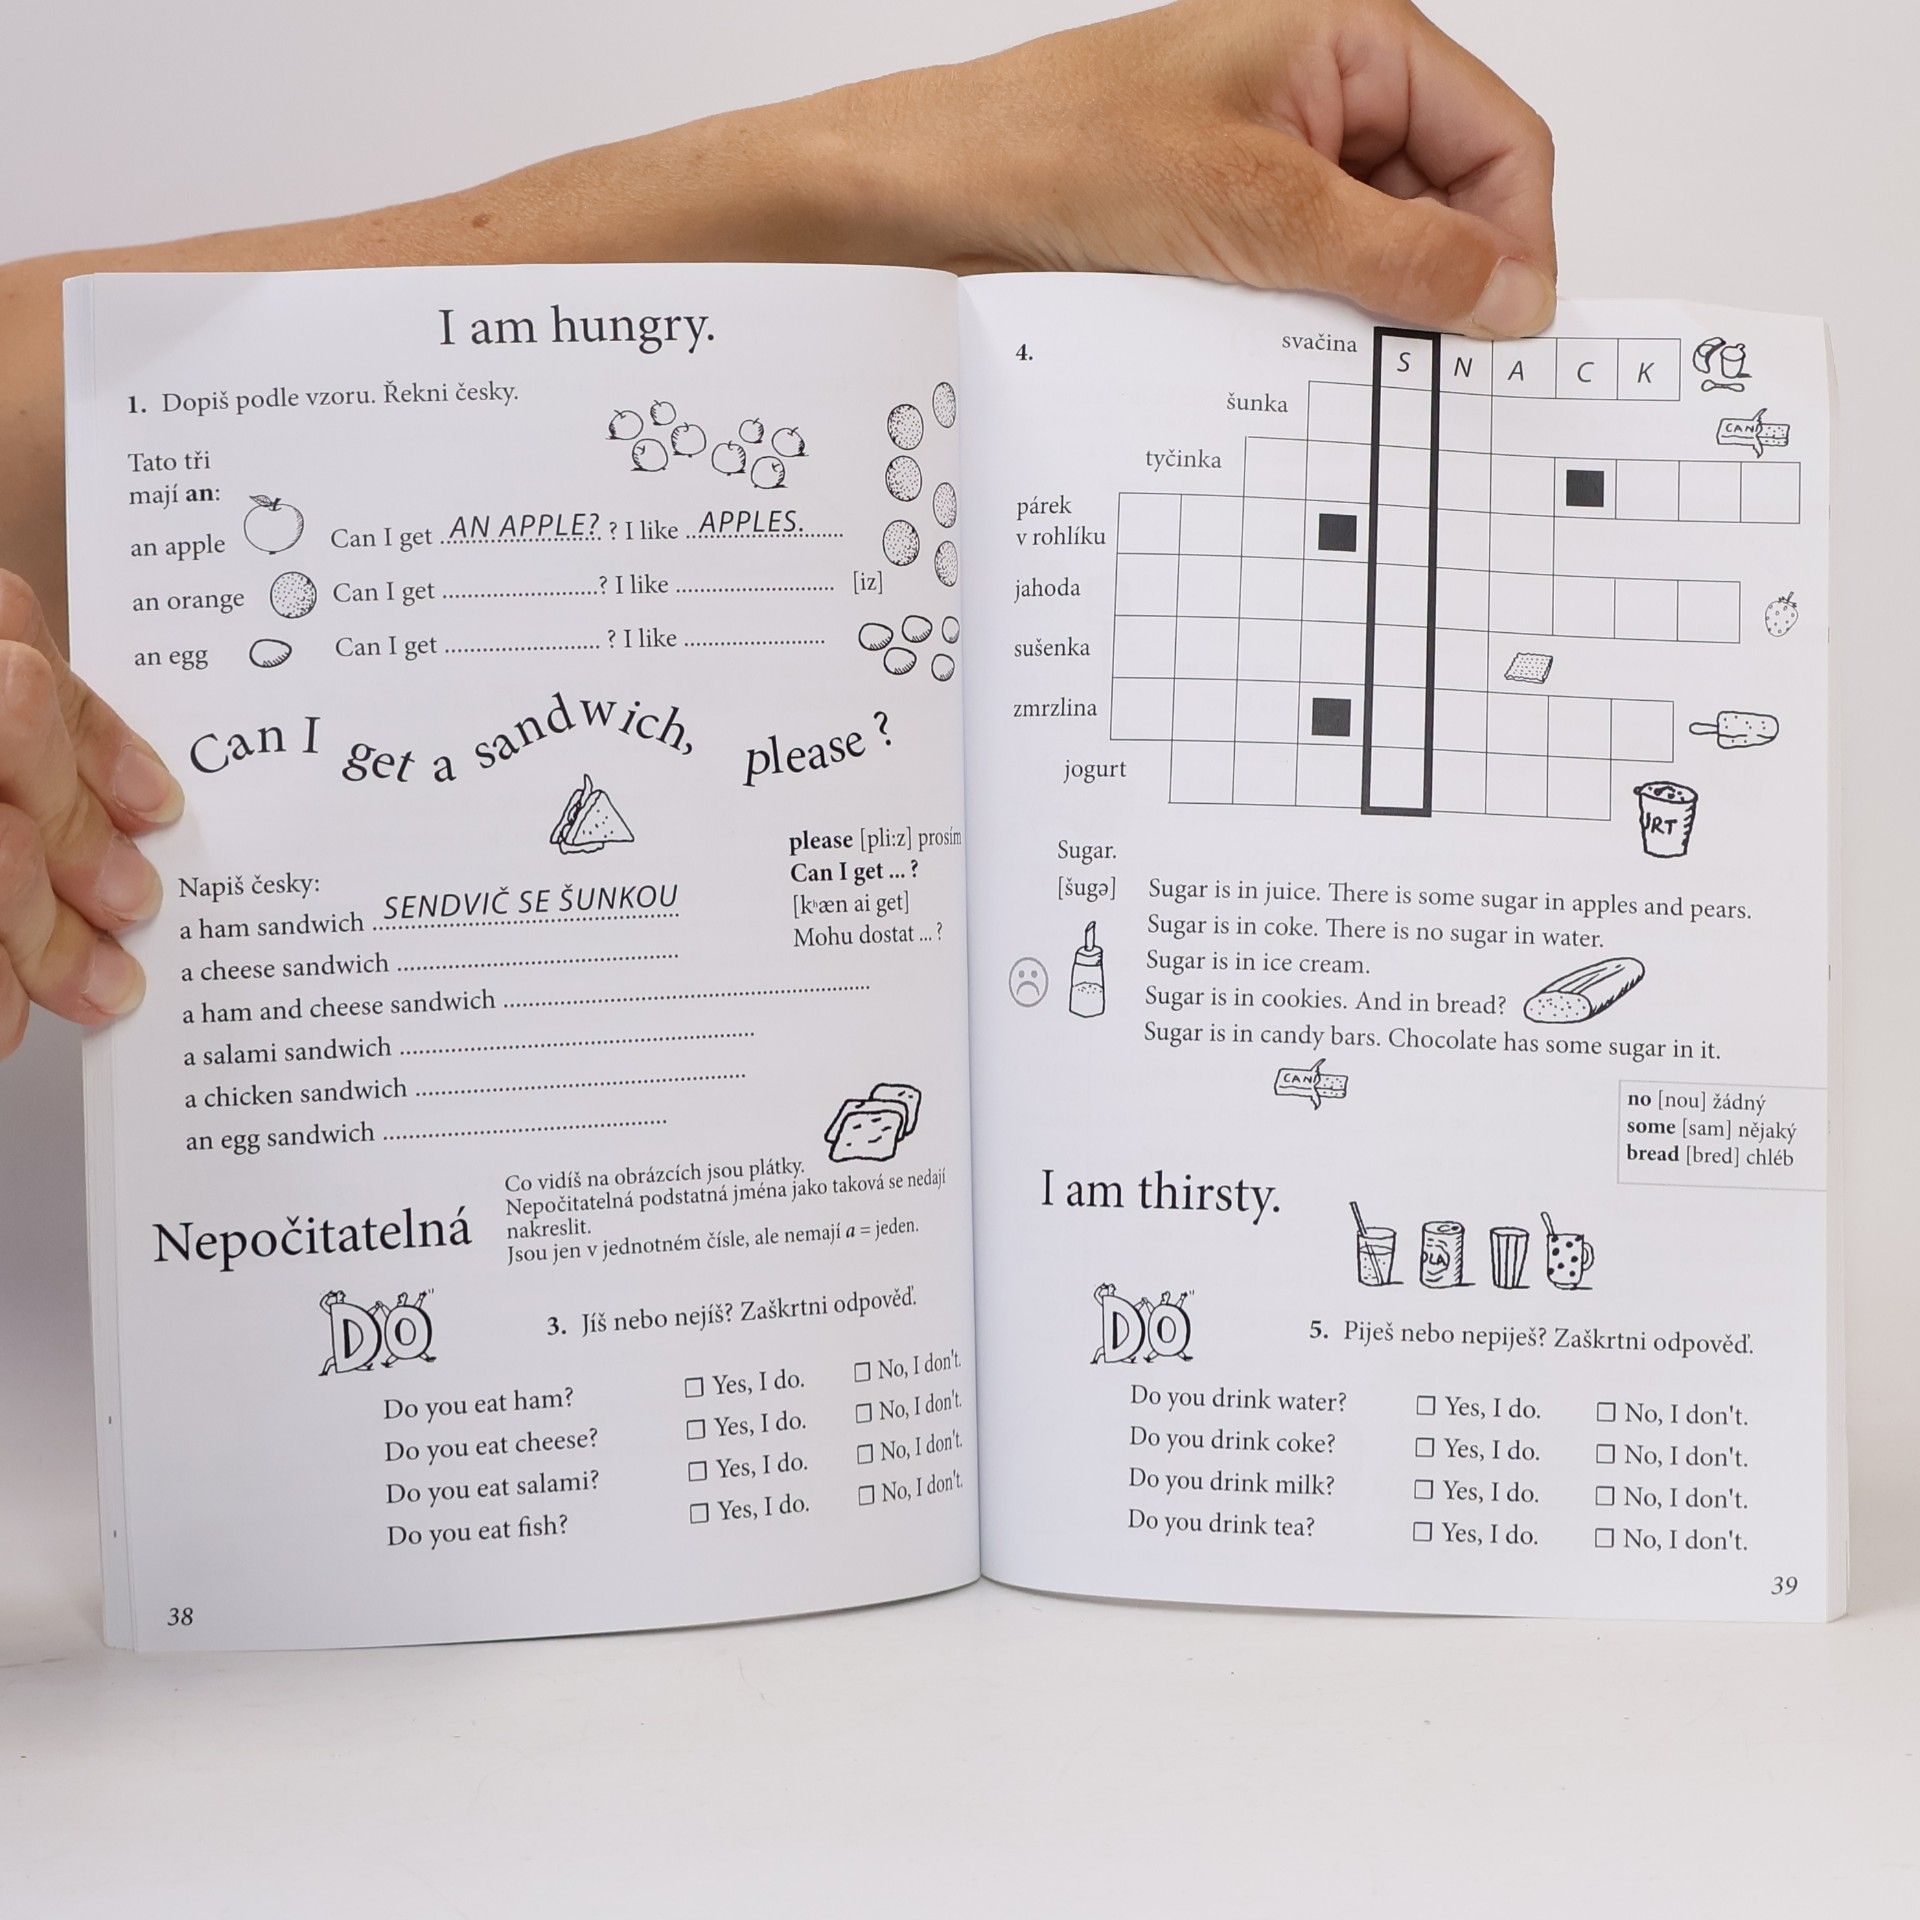 I am hungry.
1. Dopiš podle vzoru. Řekni česky.
Tato tři
mají an:
an apple Can I get AN APPLE? ? I like APPLES.
an orange Can I get ........................? I like ........................ [iz]
an egg Can I get ........................ ? I like ........................
Can I get a sandwich, please ?
please [pli:z] prosím
Can I get ... ?
[kʰæn ai get]
Mohu dostat ... ?
Napiš česky:
a ham sandwich SENDVIČ SE ŠUNKOU
a cheese sandwich ........................
a ham and cheese sandwich ........................
a salami sandwich ........................
a chicken sandwich ........................
an egg sandwich ........................
Nepočitatelná
Co vidíš na obrázcích jsou plátky.
Nepočitatelná podstatná jména jako taková se nedají
nakreslit.
Jsou jen v jednotném čísle, ale nemají a = jeden.
DO
3. Jíš nebo nejíš? Zaškrtni odpověď.
Do you eat ham? ☐ Yes, I do. ☐ No, I don't.
Do you eat cheese? ☐ Yes, I do. ☐ No, I don't.
Do you eat salami? ☐ Yes, I do. ☐ No, I don't.
Do you eat fish? ☐ Yes, I do. ☐ No, I don't.
38
4.
svačina S N A C K
šunka
CAND
tyčinka
párek
v rohlíku
jahoda
sušenka
zmrzlina
jogurt
URT
Sugar.
[šugə]
Sugar is in juice. There is some sugar in apples and pears.
Sugar is in coke. There is no sugar in water.
Sugar is in ice cream.
Sugar is in cookies. And in bread?
Sugar is in candy bars. Chocolate has some sugar in it.
CAND
no [nou] žádný
some [sam] nějaký
bread [bred] chléb
I am thirsty.
OLA
DO
5. Piješ nebo nepiješ? Zaškrtni odpověď.
Do you drink water? ☐ Yes, I do. ☐ No, I don't.
Do you drink coke? ☐ Yes, I do. ☐ No, I don't.
Do you drink milk? ☐ Yes, I do. ☐ No, I don't.
Do you drink tea? ☐ Yes, I do. ☐ No, I don't.
39